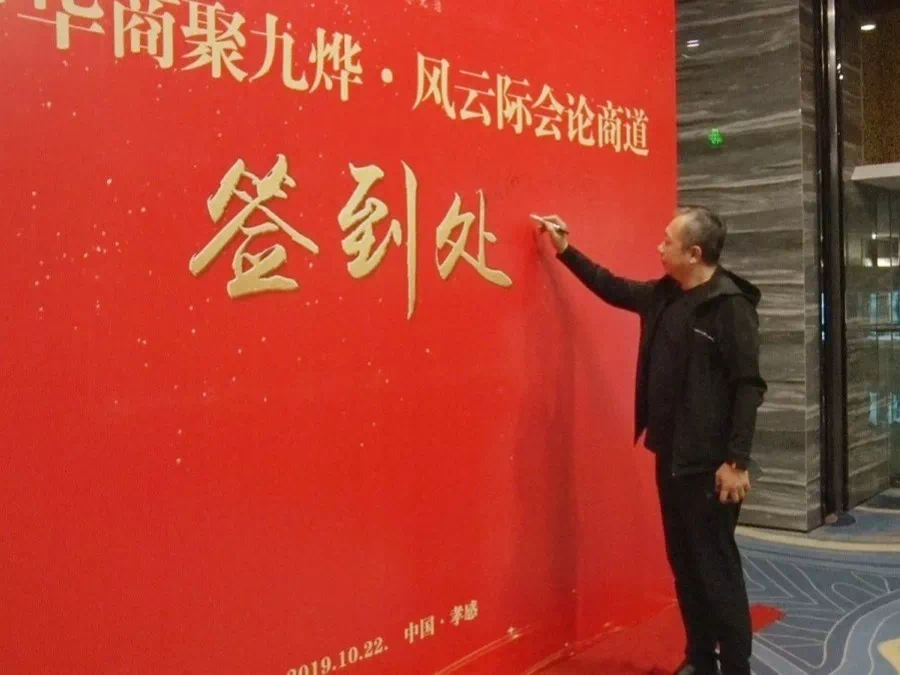 华商聚九烨·风云际会论商道
签到处
2019.10.22. 中国·孝感